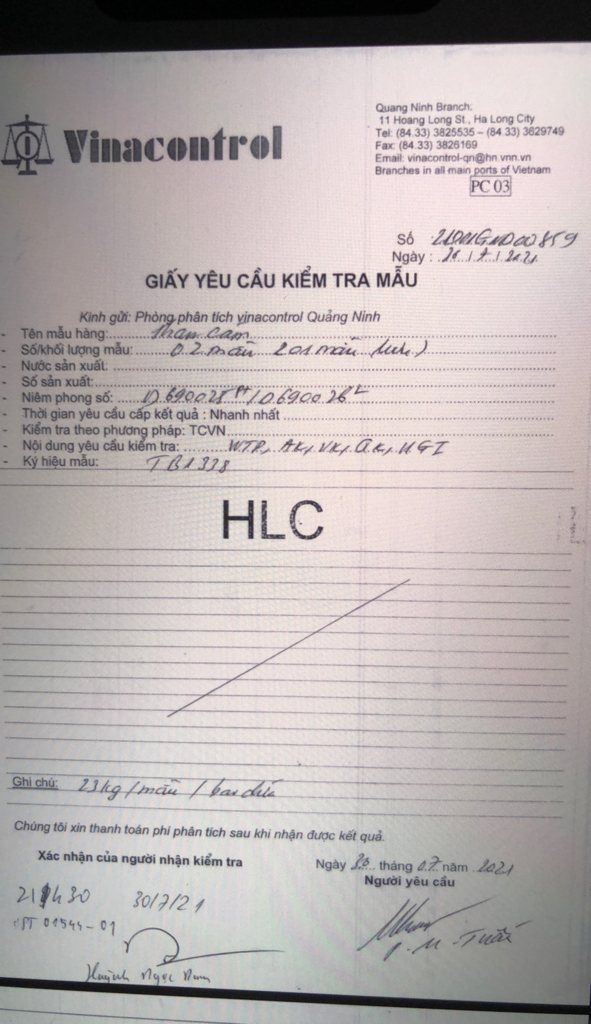 Vinacontrol
Quang Ninh Branch:
11 Hoang Long St., Ha Long City
Tel: (84.33) 3825535 – (84.33) 3629749
Fax: (84.33) 3826169
Email: vinacontrol-qn@hn.vnn.vn
Branches in all main ports of Vietnam
PC 03
Số
Ngày :
GIẤY YÊU CẦU KIỂM TRA MẪU
Kính gửi: Phòng phân tích vinacontrol Quảng Ninh
- Tên mẫu hàng: Than cam
- Số/khối lượng mẫu: 02 mẫu
- Nước sản xuất:
- Số sản xuất:
- Niêm phong số:
- Thời gian yêu cầu cấp kết quả : Nhanh nhất
- Kiểm tra theo phương pháp: TCVN
- Nội dung yêu cầu kiểm tra: WTP, AK, VK, QK, HGI
- Ký hiệu mẫu: TB1338
HLC
Ghi chú: 23kg/mẫu / bao
Chúng tôi xin thanh toán phí phân tích sau khi nhận được kết quả.
Xác nhận của người nhận kiểm tra
Ngày 30 tháng 07 năm 2021
Người yêu cầu
21h30 30/7/21
01544-01
Huỳnh Ngọc
Tuấn